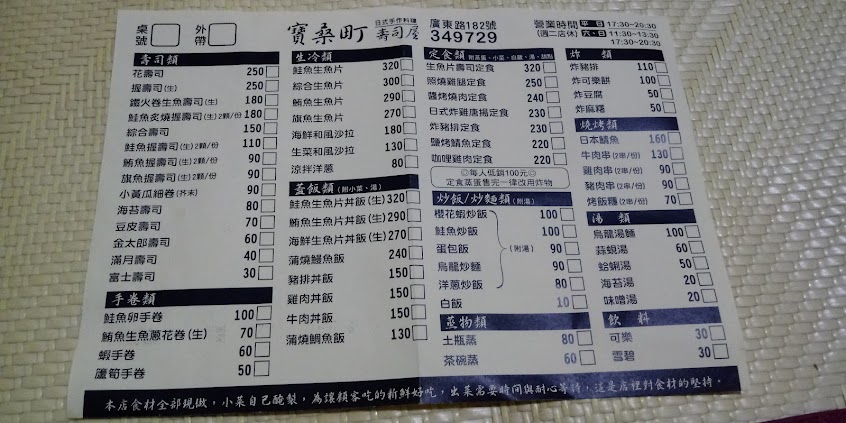 桌號
外帶
寶桑町 日式手作料理 壽司屋
廣東路182號
349729
營業時間 平日 17:30~20:30
(週二店休) 六、日 11:30~13:30
17:30~20:30
壽司類
花壽司 250
握壽司(生) 250
鐵火卷生魚壽司(生) 180
鮭魚炙燒握壽司(生)2顆/份 180
綜合壽司 150
鮭魚握壽司(生)2顆/份 110
鮪魚握壽司(生)2顆/份 90
旗魚握壽司(生)2顆/份 90
小黃瓜細卷(芥末) 90
海苔壽司 80
豆皮壽司 70
金太郎壽司 60
滿月壽司 40
富士壽司 30
手卷類
鮭魚卵手卷 100
鮪魚生魚蔥花卷(生) 70
蝦手卷 60
蘆筍手卷 50
生冷類
鮭魚生魚片 320
綜合生魚片 300
鮪魚生魚片 290
旗魚生魚片 270
海鮮和風沙拉 180
生菜和風沙拉 130
涼拌洋蔥 80
蓋飯類(附小菜、湯)
鮭魚生魚片丼飯(生) 320
鮪魚生魚片丼飯(生) 290
海鮮生魚片丼飯(生) 270
蒲燒鰻魚飯 240
豬排丼飯 150
雞肉丼飯 150
牛肉丼飯 150
蒲燒鯛魚飯 130
定食類 附蒸蛋、小菜、白飯、湯、甜點
生魚片壽司定食 320
照燒雞腿定食 250
醬烤燒肉定食 240
日式炸雞唐揚定食 230
炸豬排定食 230
鹽烤鯖魚定食 220
咖哩雞肉定食 220
◎每人低銷100元◎
定食蒸蛋售完一律改用炸物
炒飯/炒麵類(附湯)
櫻花蝦炒飯 100
鮭魚炒飯 100
蛋包飯 90
烏龍炒麵 90
洋蔥炒飯 80
(附湯)
白飯 10
蒸物類
土瓶蒸 80
茶碗蒸 60
炸類
炸豬排 110
炸可樂餅 100
炸豆腐 50
炸麻糬 50
燒烤類
日本鯖魚 160
牛肉串(2串/份) 130
雞肉串(2串/份) 90
豬肉串(2串/份) 90
烤飯糰(2串/份) 70
湯類
烏龍湯麵 100
蒜蜆湯 60
蛤蜊湯 50
海苔湯 20
味噌湯 20
飲料
可樂 30
雪碧 30
本店食材全部現做，小菜自己醃製，為讓顧客吃的新鮮好吃，出菜需要時間與耐心等待，這是店裡對食材的堅持。